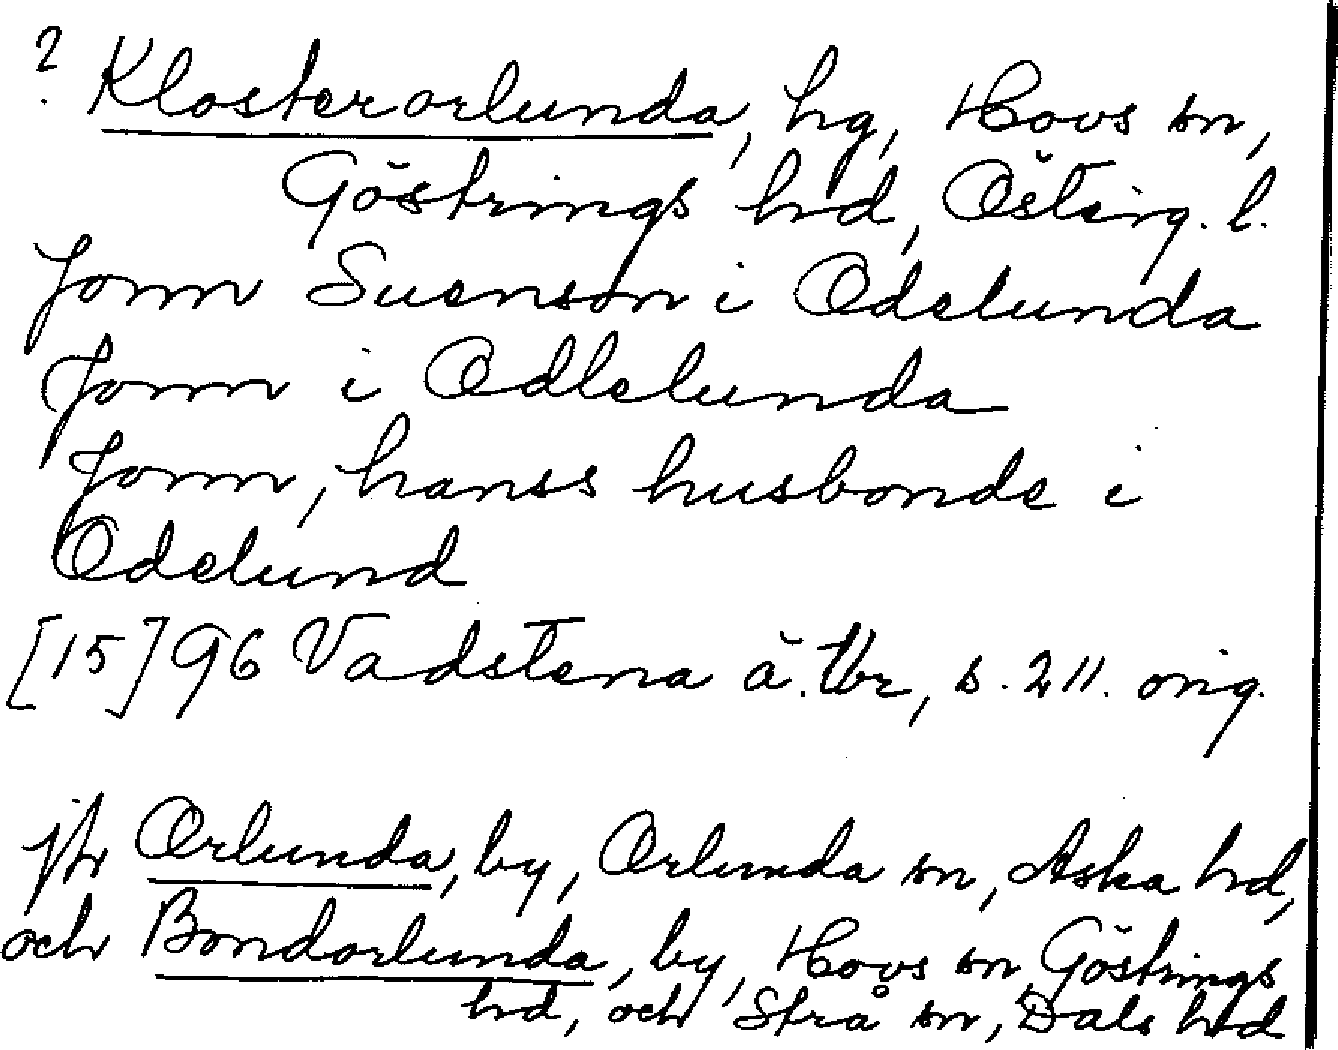 ? Klosterorlunda, hg, Hovs sn,
Göstrings hrd, Österg. l.
Jonn Suenson i Odelunda
Jonn i Odlelunda
Jonn, hanss husbonde i
Odelund
[15]96 Vadstena ä. tbr, s. 211. orig.
jfr Orlunda, by, Orlunda sn, Aska hrd,
och Bondorlunda, by, Hovs sn, Göstrings
hrd, och Strå sn, Dals hrd